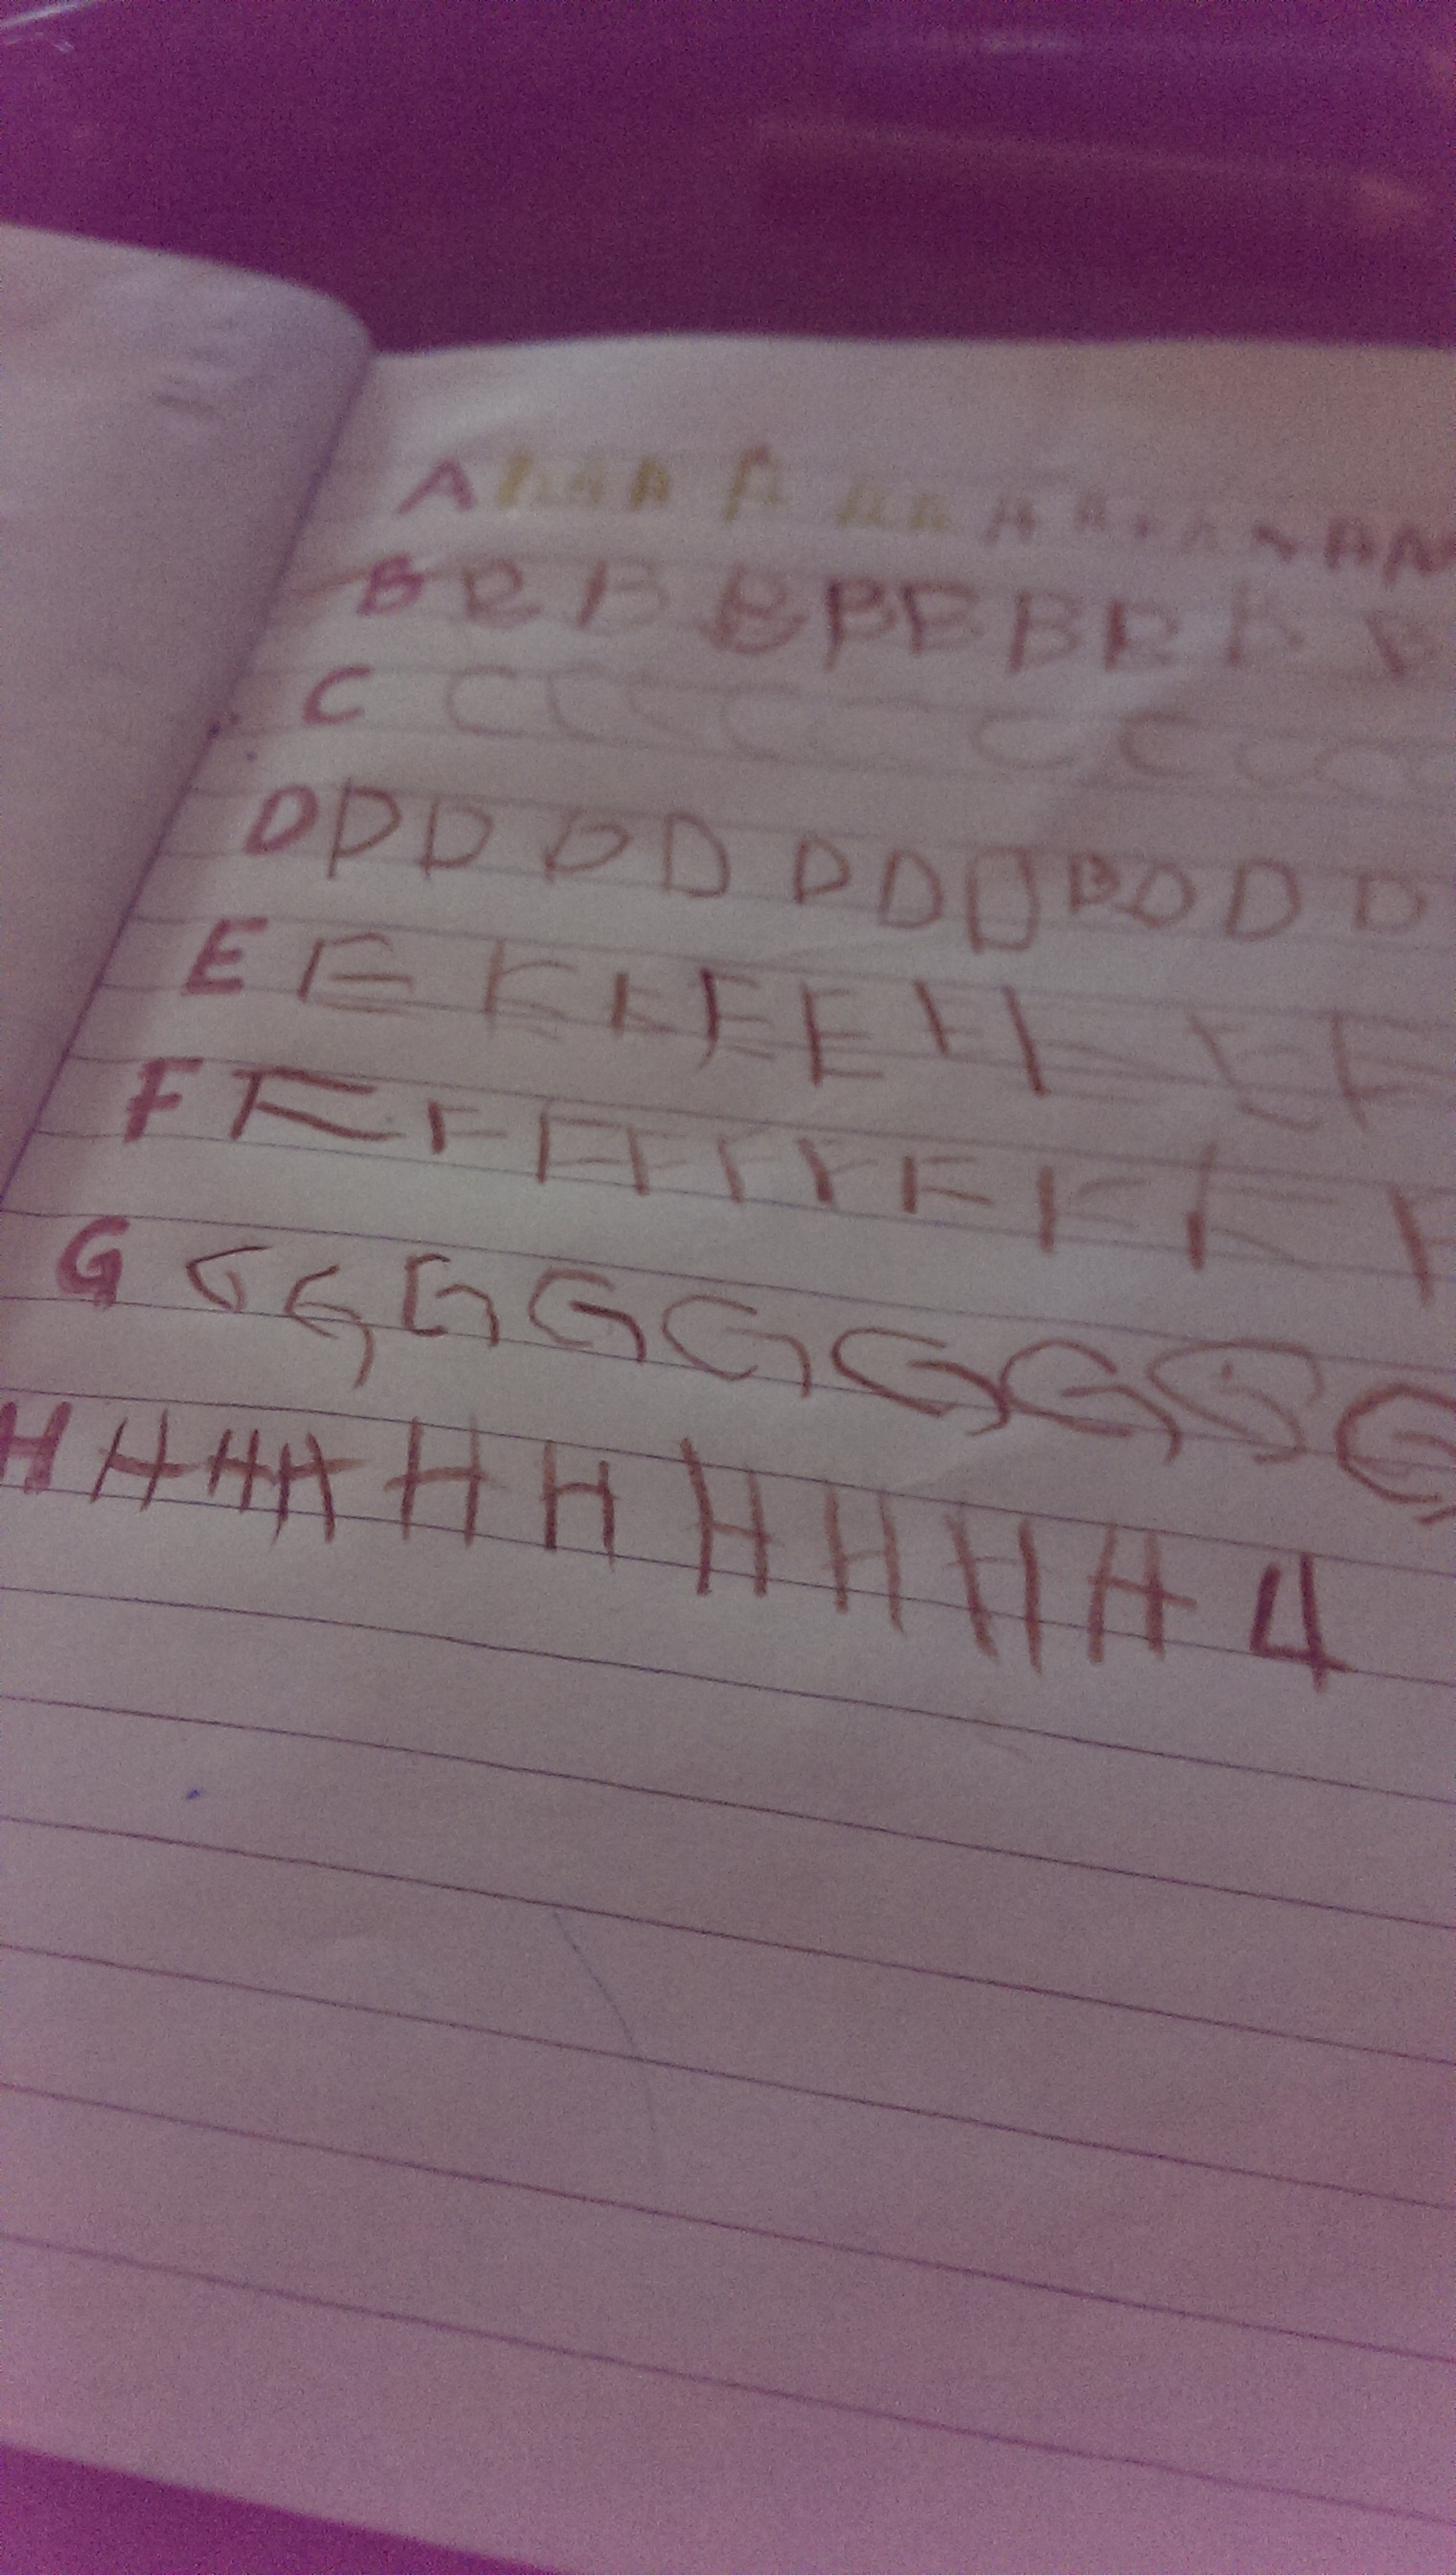 A A A A A A A A A A A
B B B B B B B B B B
C C C C C C C C C C
D D D D D D D D D B D D D
E E E E E E E E E E
F F F F F F F F F F F
G G G G G G G G G G
H H H H H H H H H H 4